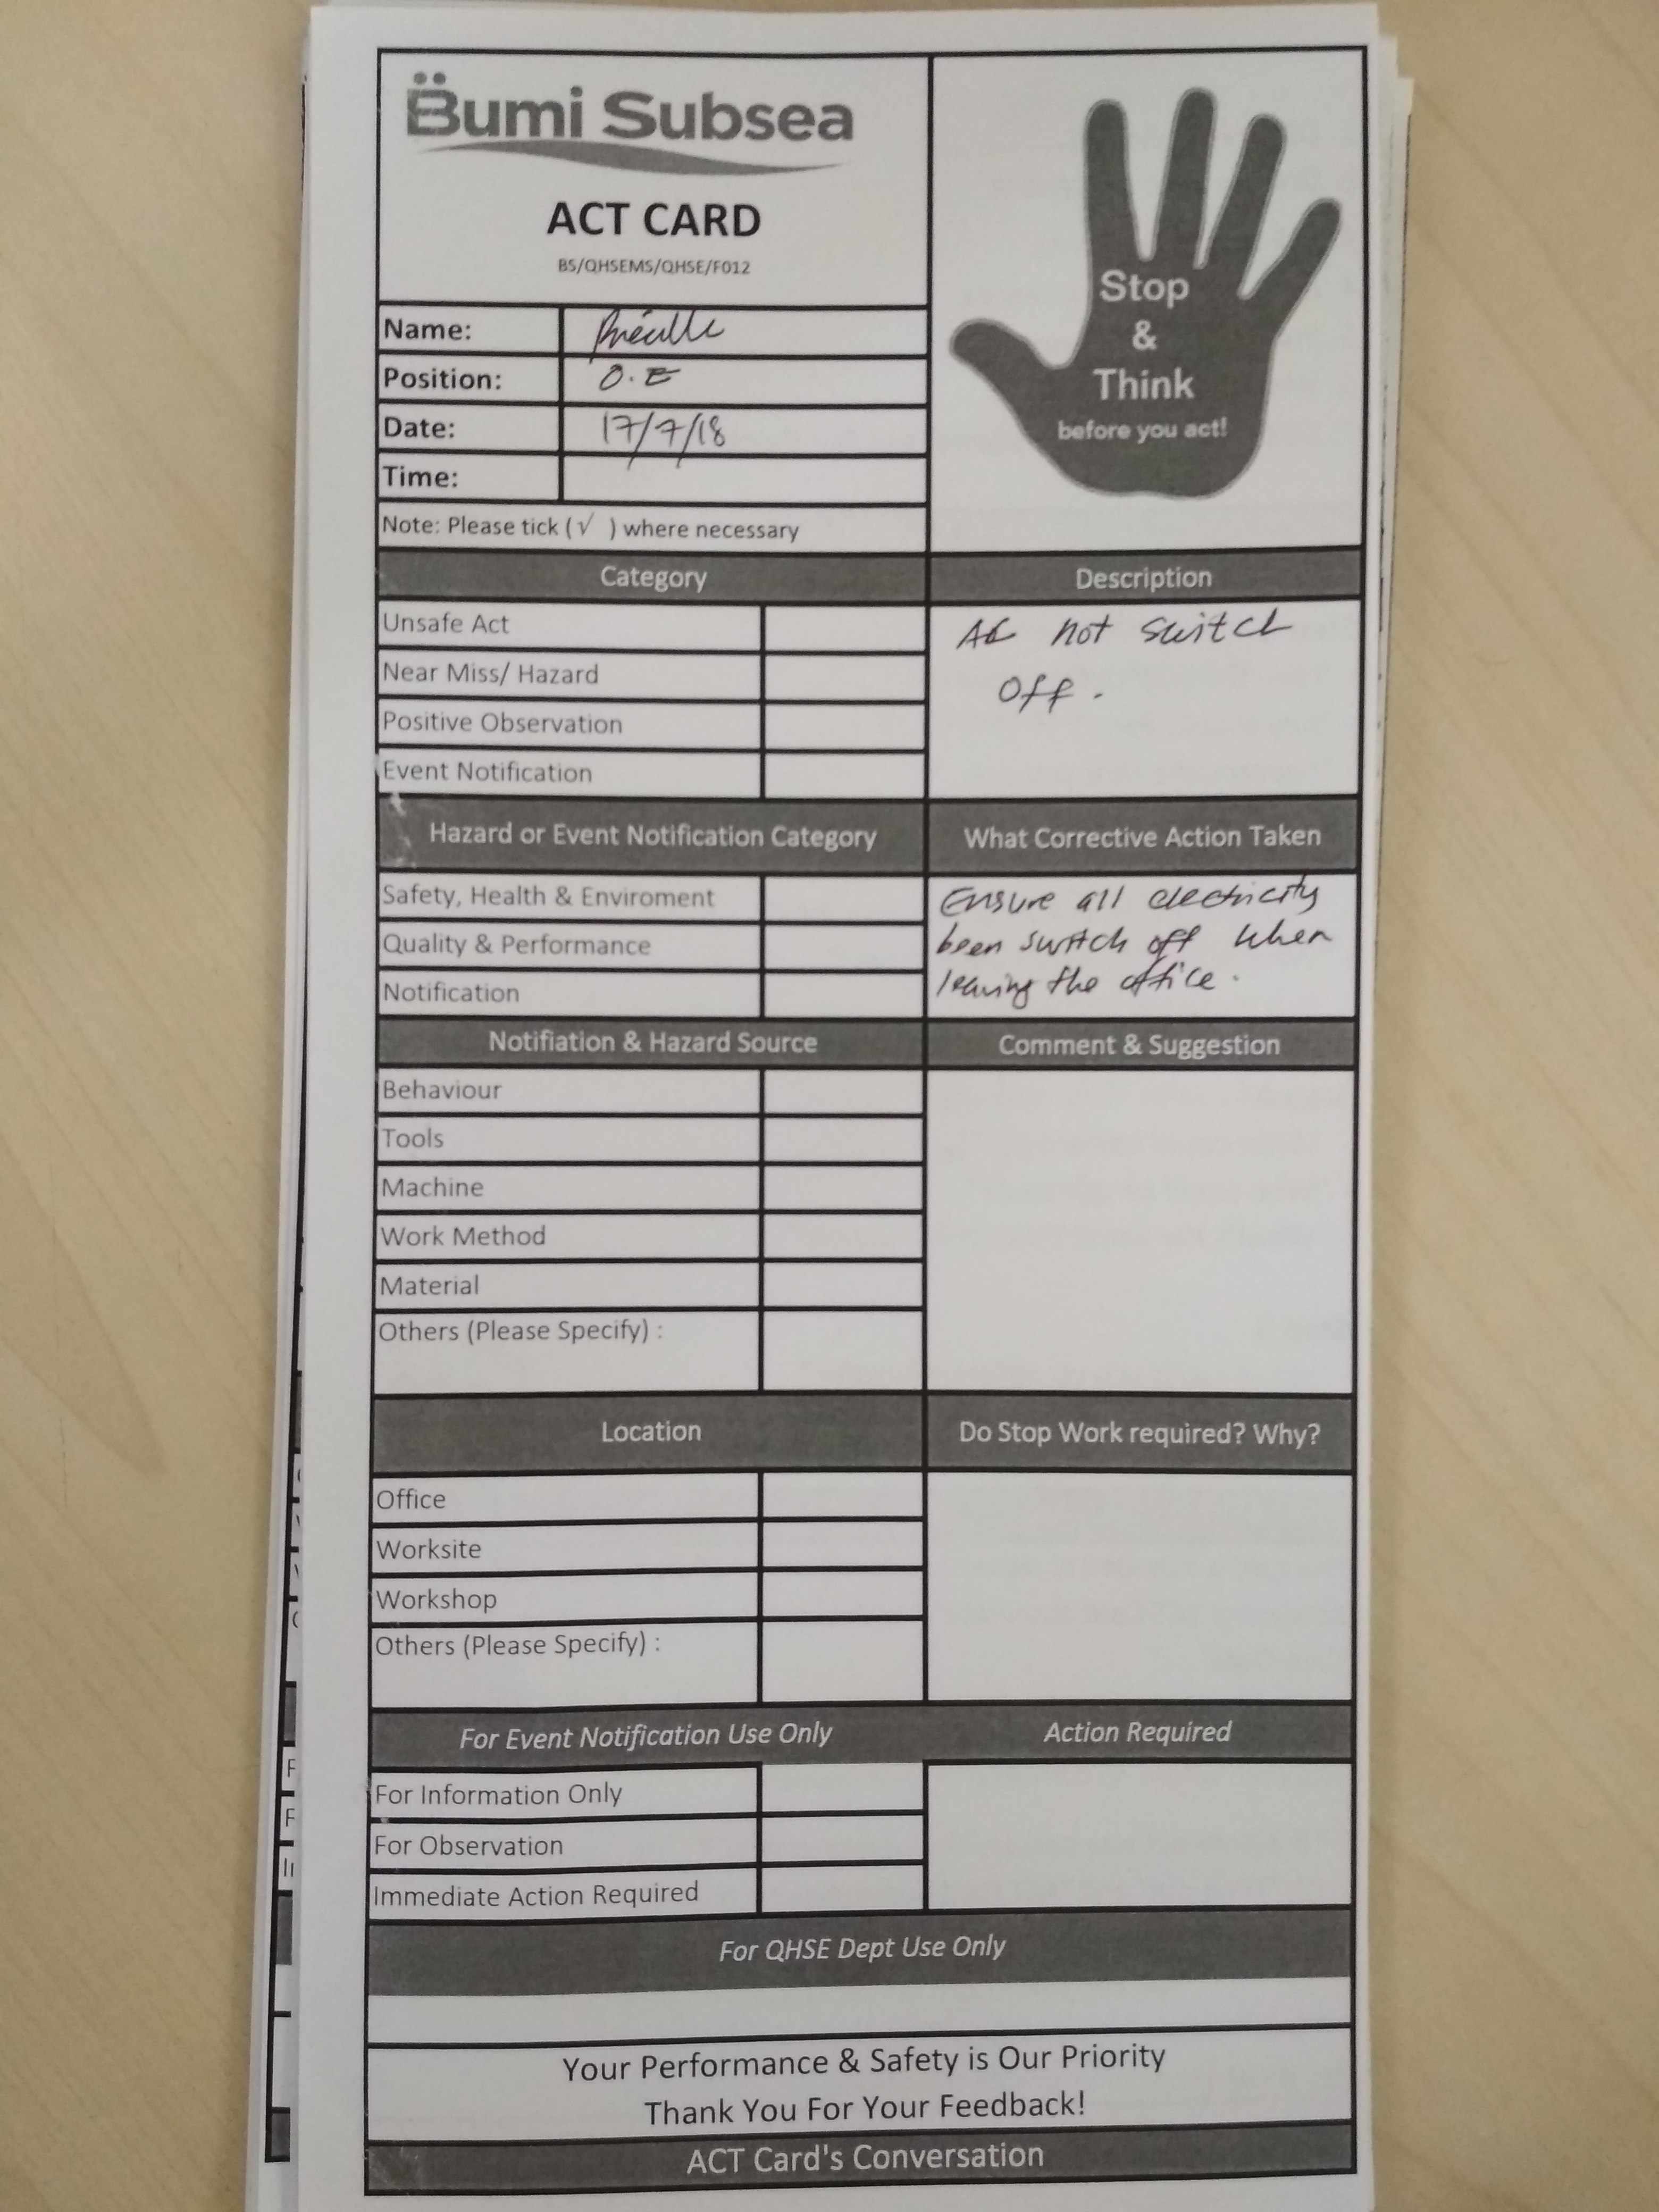 Bumi Subsea
ACT CARD
BS/QHSEMS/QHSE/F012
Stop
&
Think
before you act!
Name:
Position: O.E
Date: 17/7/18
Time:
Note: Please tick (√ ) where necessary
Category
Description
Unsafe Act
Near Miss/ Hazard
Positive Observation
Event Notification
AC not switch
off.
Hazard or Event Notification Category
What Corrective Action Taken
Safety, Health & Enviroment
Quality & Performance
Notification
Ensure all electricity
been switch off when
leaving the office.
Notifiation & Hazard Source
Comment & Suggestion
Behaviour
Tools
Machine
Work Method
Material
Others (Please Specify) :
Location
Do Stop Work required? Why?
Office
Worksite
Workshop
Others (Please Specify) :
For Event Notification Use Only
Action Required
For Information Only
For Observation
Immediate Action Required
For QHSE Dept Use Only
Your Performance & Safety is Our Priority
Thank You For Your Feedback!
ACT Card's Conversation